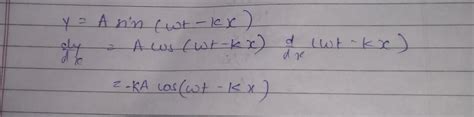 y = A sin (wt - kx)
dy/dx = A cos (wt - kx) d/dx (wt - kx)
= -kA cos(wt - kx)